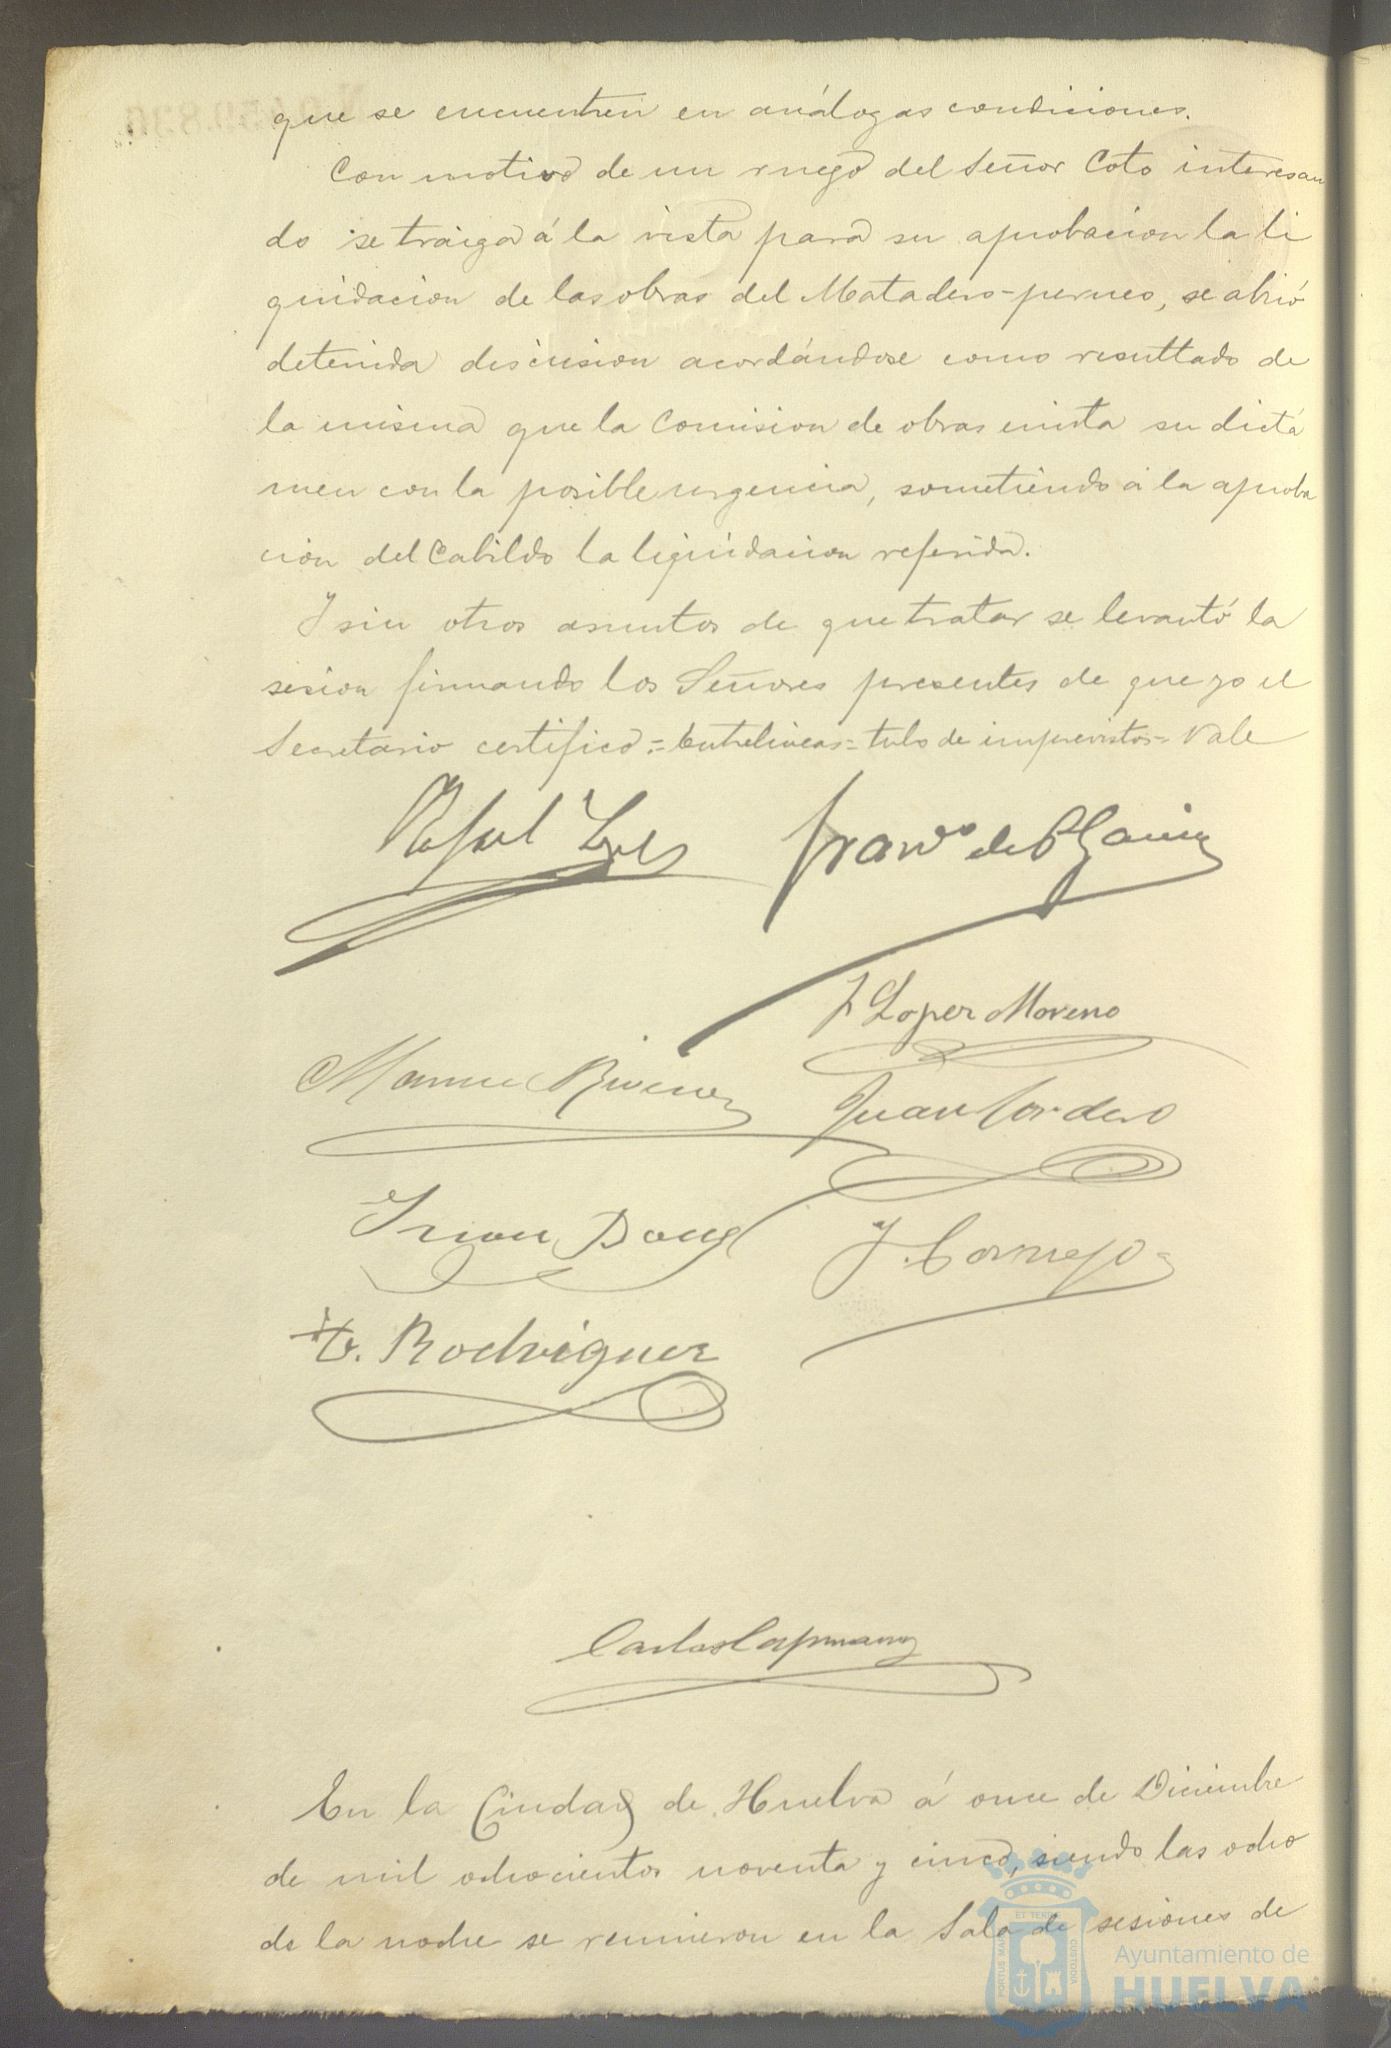 que se encuentren en análogas condiciones.
Con motivo de un ruego del Señor Coto interesan
do se traiga á la vista para su aprobacion la li
quidacion de las obras del Matadero-perneo, se abrió
detenida discusion acordándose como resultado de
la misma que la Comision de obras emita su dictá
men con la posible urgencia, sometiendo á la aproba
cion del Cabildo la liquidacion referida.
Y sin otros asuntos de que tratar se levantó la
sesion firmando los Señores presentes de que yo el
Secretario certifico.=Entrelineas=tulo de imprevistos=Vale
Rafael Franco de P.
J Lopez Moreno
Manuel
Juan Cordero
J. Cornejo
Rodriguez
Carlos Capmany
En la Ciudad de Huelva á once de Diciembre
de mil ochocientos noventa y cinco, siendo las ocho
de la noche se reunieron en la Sala de sesiones de
PORTUS MARIS ET TERRE CUSTODIA
Ayuntamiento de
HUELVA